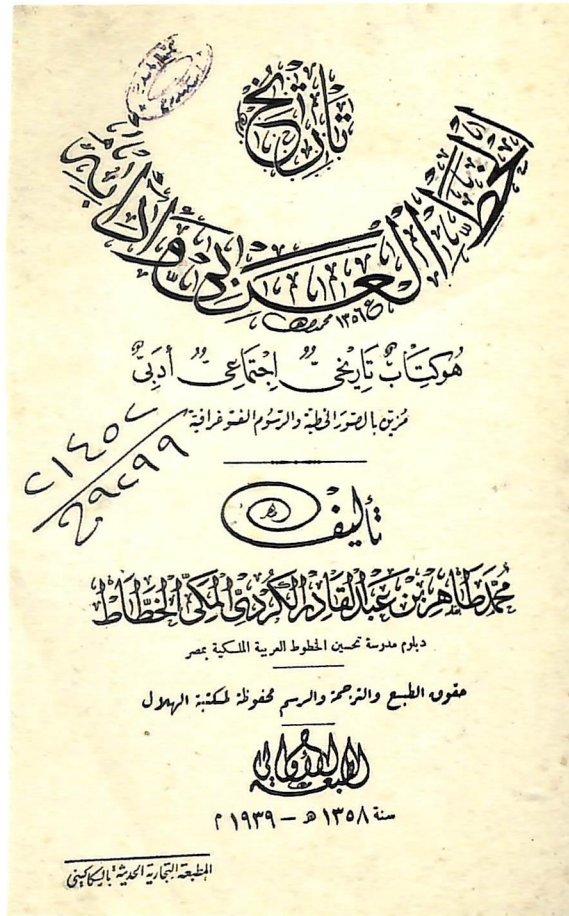 تاريخ
الخط العربي وآدابه
١٣٥٦
هو كتابٌ تاريخيٌّ إجتماعيٌّ أدبيٌّ
مزين بالصور الخطية والرسوم الفتوغرافية
٢١٤٥٢
٢٩٢٩٩
تأليف
محمد طاهر بن عبد القادر الكردي المكي الخطاط
دبلوم مدرسة تحسين الخطوط العربية الملكية بمصر
حقوق الطبع والترجمة والرسم محفوظة لمكتبة الهلال
الطبعة الأولى
سنة ١٣٥٨ هـ – ١٩٣٩ م
المطبعة التجارية الحديثة بالسكاكيني